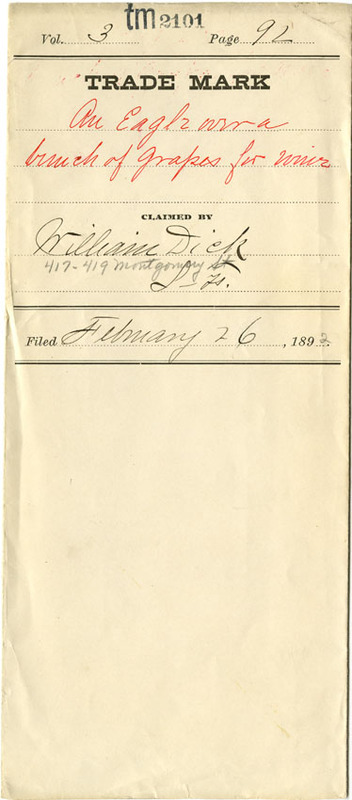 tm 2101
Vol. 3 Page 92
TRADE MARK
An Eagle over a
bunch of Grapes for wine
CLAIMED BY
William Dick
417-419 Montgomery St
S. F.
Filed February 26, 1892.